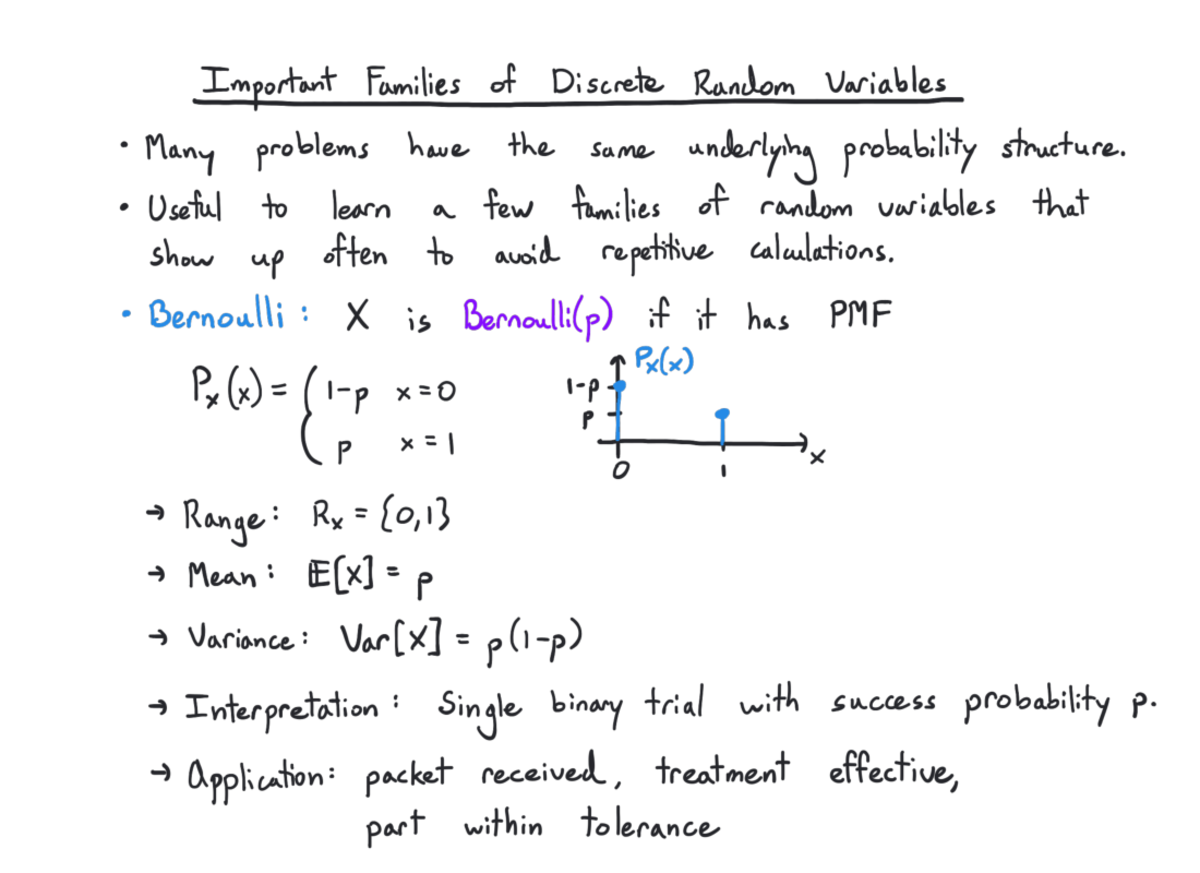 Important Families of Discrete Random Variables
• Many problems have the same underlying probability structure.
• Useful to learn a few families of random variables that
show up often to avoid repetitive calculations.
• Bernoulli: X is Bernoulli(p) if it has PMF
Pₓ(x) = { 1-p x=0
p x=1
Pₓ(x)
1-p
p
0 1 x
→ Range: Rₓ = {0,1}
→ Mean: 𝔼[X] = p
→ Variance: Var[X] = p(1-p)
→ Interpretation: Single binary trial with success probability p.
→ Application: packet received, treatment effective,
part within tolerance